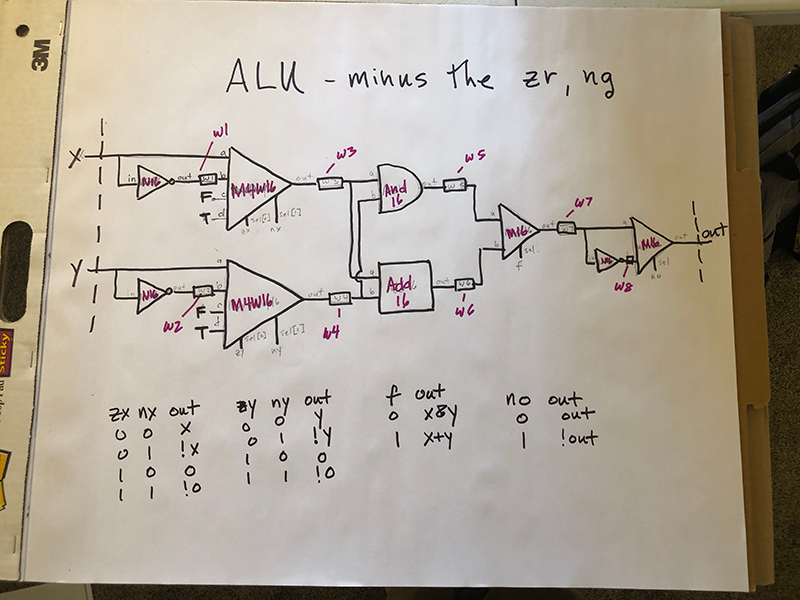 3M
Sticky
ALU - minus the zr, ng
X
w1
a
in
N16
out
w1
b
M4W16
F
c
T
d
sel[0]
sel[1]
zx
nx
out
w3
w3
a
b
And
16
out
w5
Y
a
in
N16
out
w2
w2
b
M4W16
F
c
T
d
zy
ny
out
w4
w4
a
b
Add
16
out
w6
w6
a
b
M16
sel
f
out
w7
a
N16
w8
M16
sel
no
out
out
zx nx out
0 0 x
0 1 !x
1 0 0
1 1 !0
zy ny out
0 0 y
0 1 !y
1 0 0
1 1 !0
f out
0 x&y
1 x+y
no out
0 out
1 !out